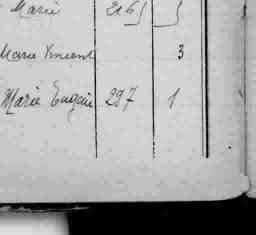 Marie 2265
Marie Vincent 3
Marie Eugénie 297 1